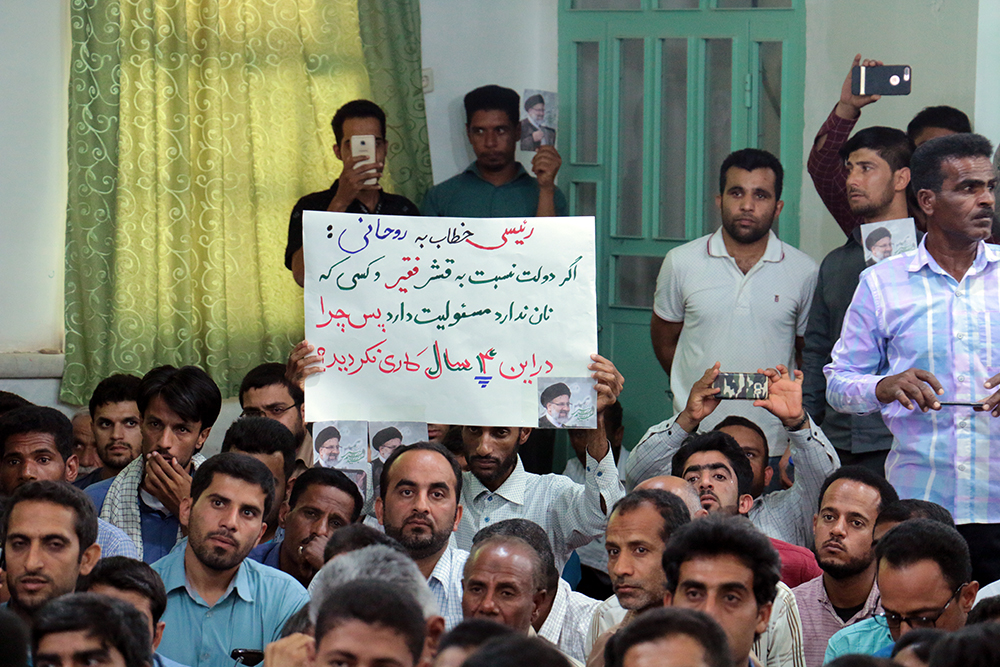 رئیسی خطاب به روحانی :
اگر دولت نسبت به قشر فقیر و کسی که
نان ندارد مسئولیت دارد پس چرا
در این ۴ سال کاری نکردید؟